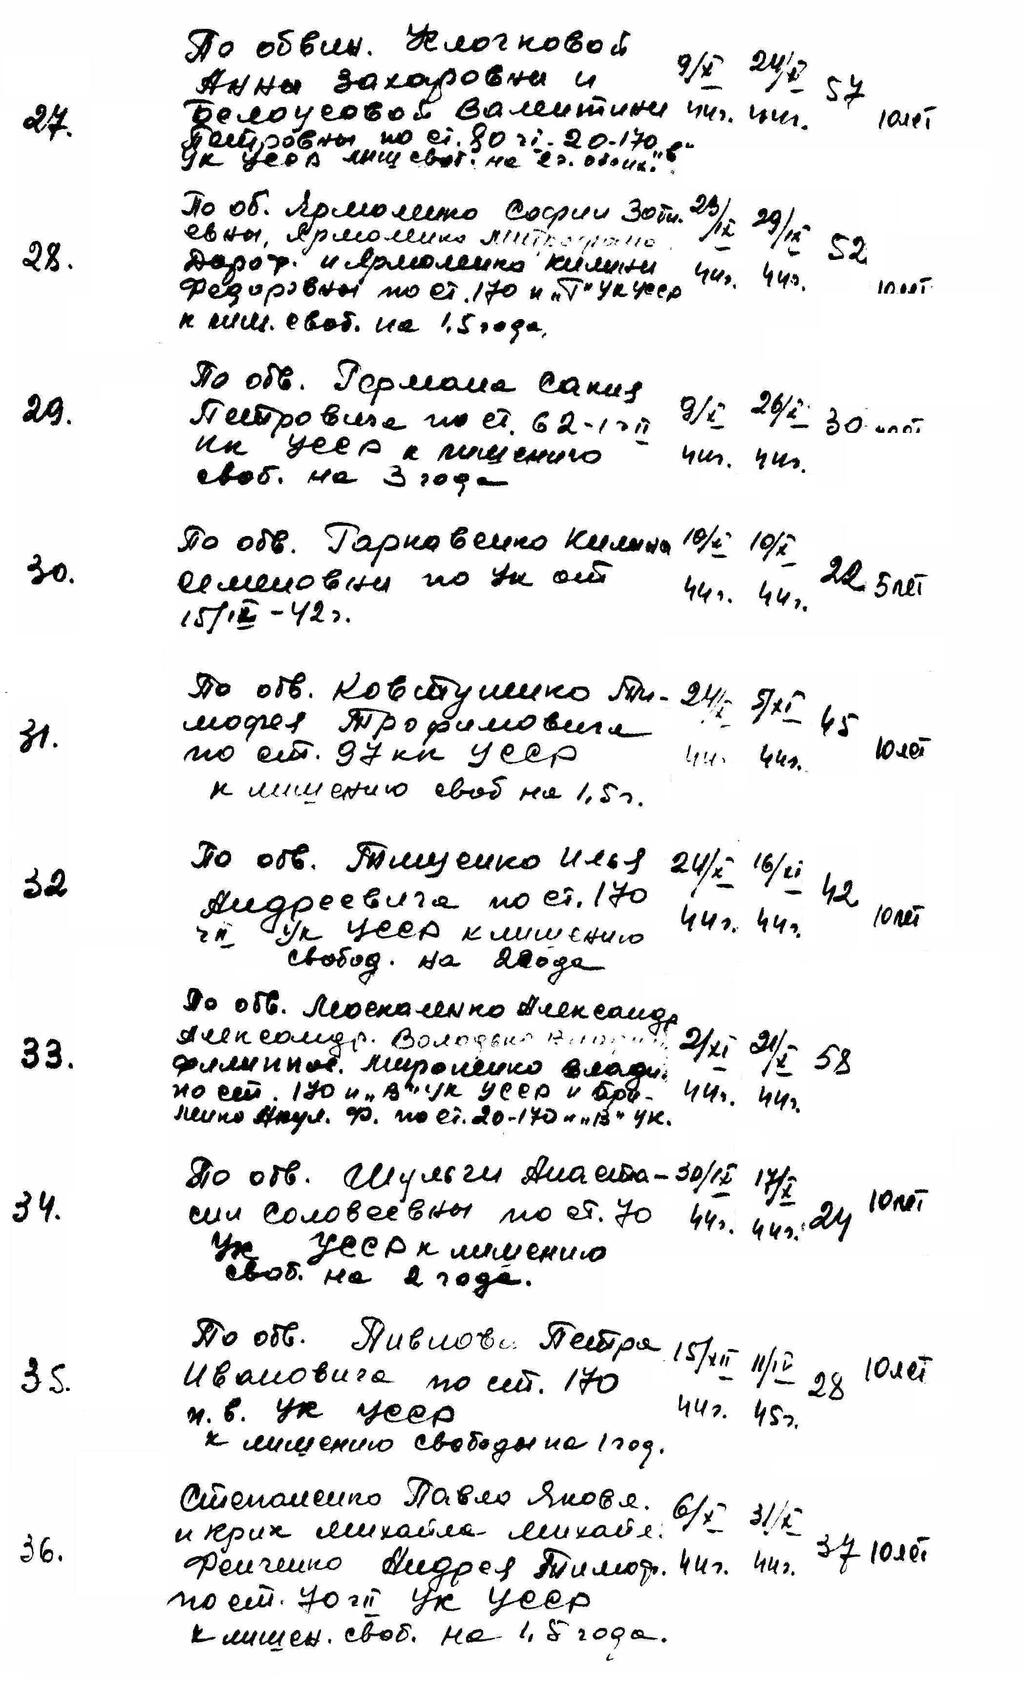 27.
По обвин. Клочковой
Анны Захаровны и
Белоусовой Валентины
Петровны по ст. 80 ч I - 20-170
УК УССР лиш своб. на
9/X 44г.
24/X 44г.
57
10 лет
28.
По об. Ярмоленко Софии Зоти-
евны, Ярмоленко Митрофана
Дороф. и Ярмоленко Килини
Федоровны по ст. 170 п „Г" УК УССР
к лиш. своб. на 1,5 года,
23/IX 44г.
29/IX 44г.
52
10 лет
29.
По обв. Германа
Петровича по ст. 62-1 ч II
УССР к лишению
своб. на 3 года
9/X 44г.
26/X 44г.
30
30.
По обв. Гарковенко Килина
Семеновны по Ук от
15/IX-42 г.
10/X 44г.
10/X 44г.
22
5 лет
31.
По обв. Ковтушенко Ти-
мофея Трофимовича
по ст. 97 УК УССР
к лишению своб на 1,5 г.
24/X 44
5/XI 44г.
45
10 лет
32
По обв. Тищенко Илья
Андреевича по ст. 170
ч II УК УССР к лишению
свобод. на 2 года
24/X 44г.
16/XI 44г.
42
10 лет
33.
По обв. Москаленко Александр
Александр.
Мироненко Влади
по ст. 170 п „В" УК УССР и
Ф. по ст. 20-170 п „В" УК.
2/XI 44г.
21/X 44г.
58
34.
По обв. Шульги Анаста-
сии Соловеевны по ст. 70
УК УССР к лишению
своб. на 2 года.
30/IX 44г.
17/X 44г.
24
10 лет
35.
По обв. Пивлова Петра
Ивановича по ст. 170
п. в. УК УССР
к лишению свободы на 1 год.
15/XII 44г.
11/IV 45г.
28
10 лет
36.
Степаненко Павло Яковл.
и Крик Михайла Михайл.
Андрея Тимоф.
по ст. 70 ч II УК УССР
к лишен. своб. на 1,5 года.
6/X 44г.
31/X 44г.
37
10 лет